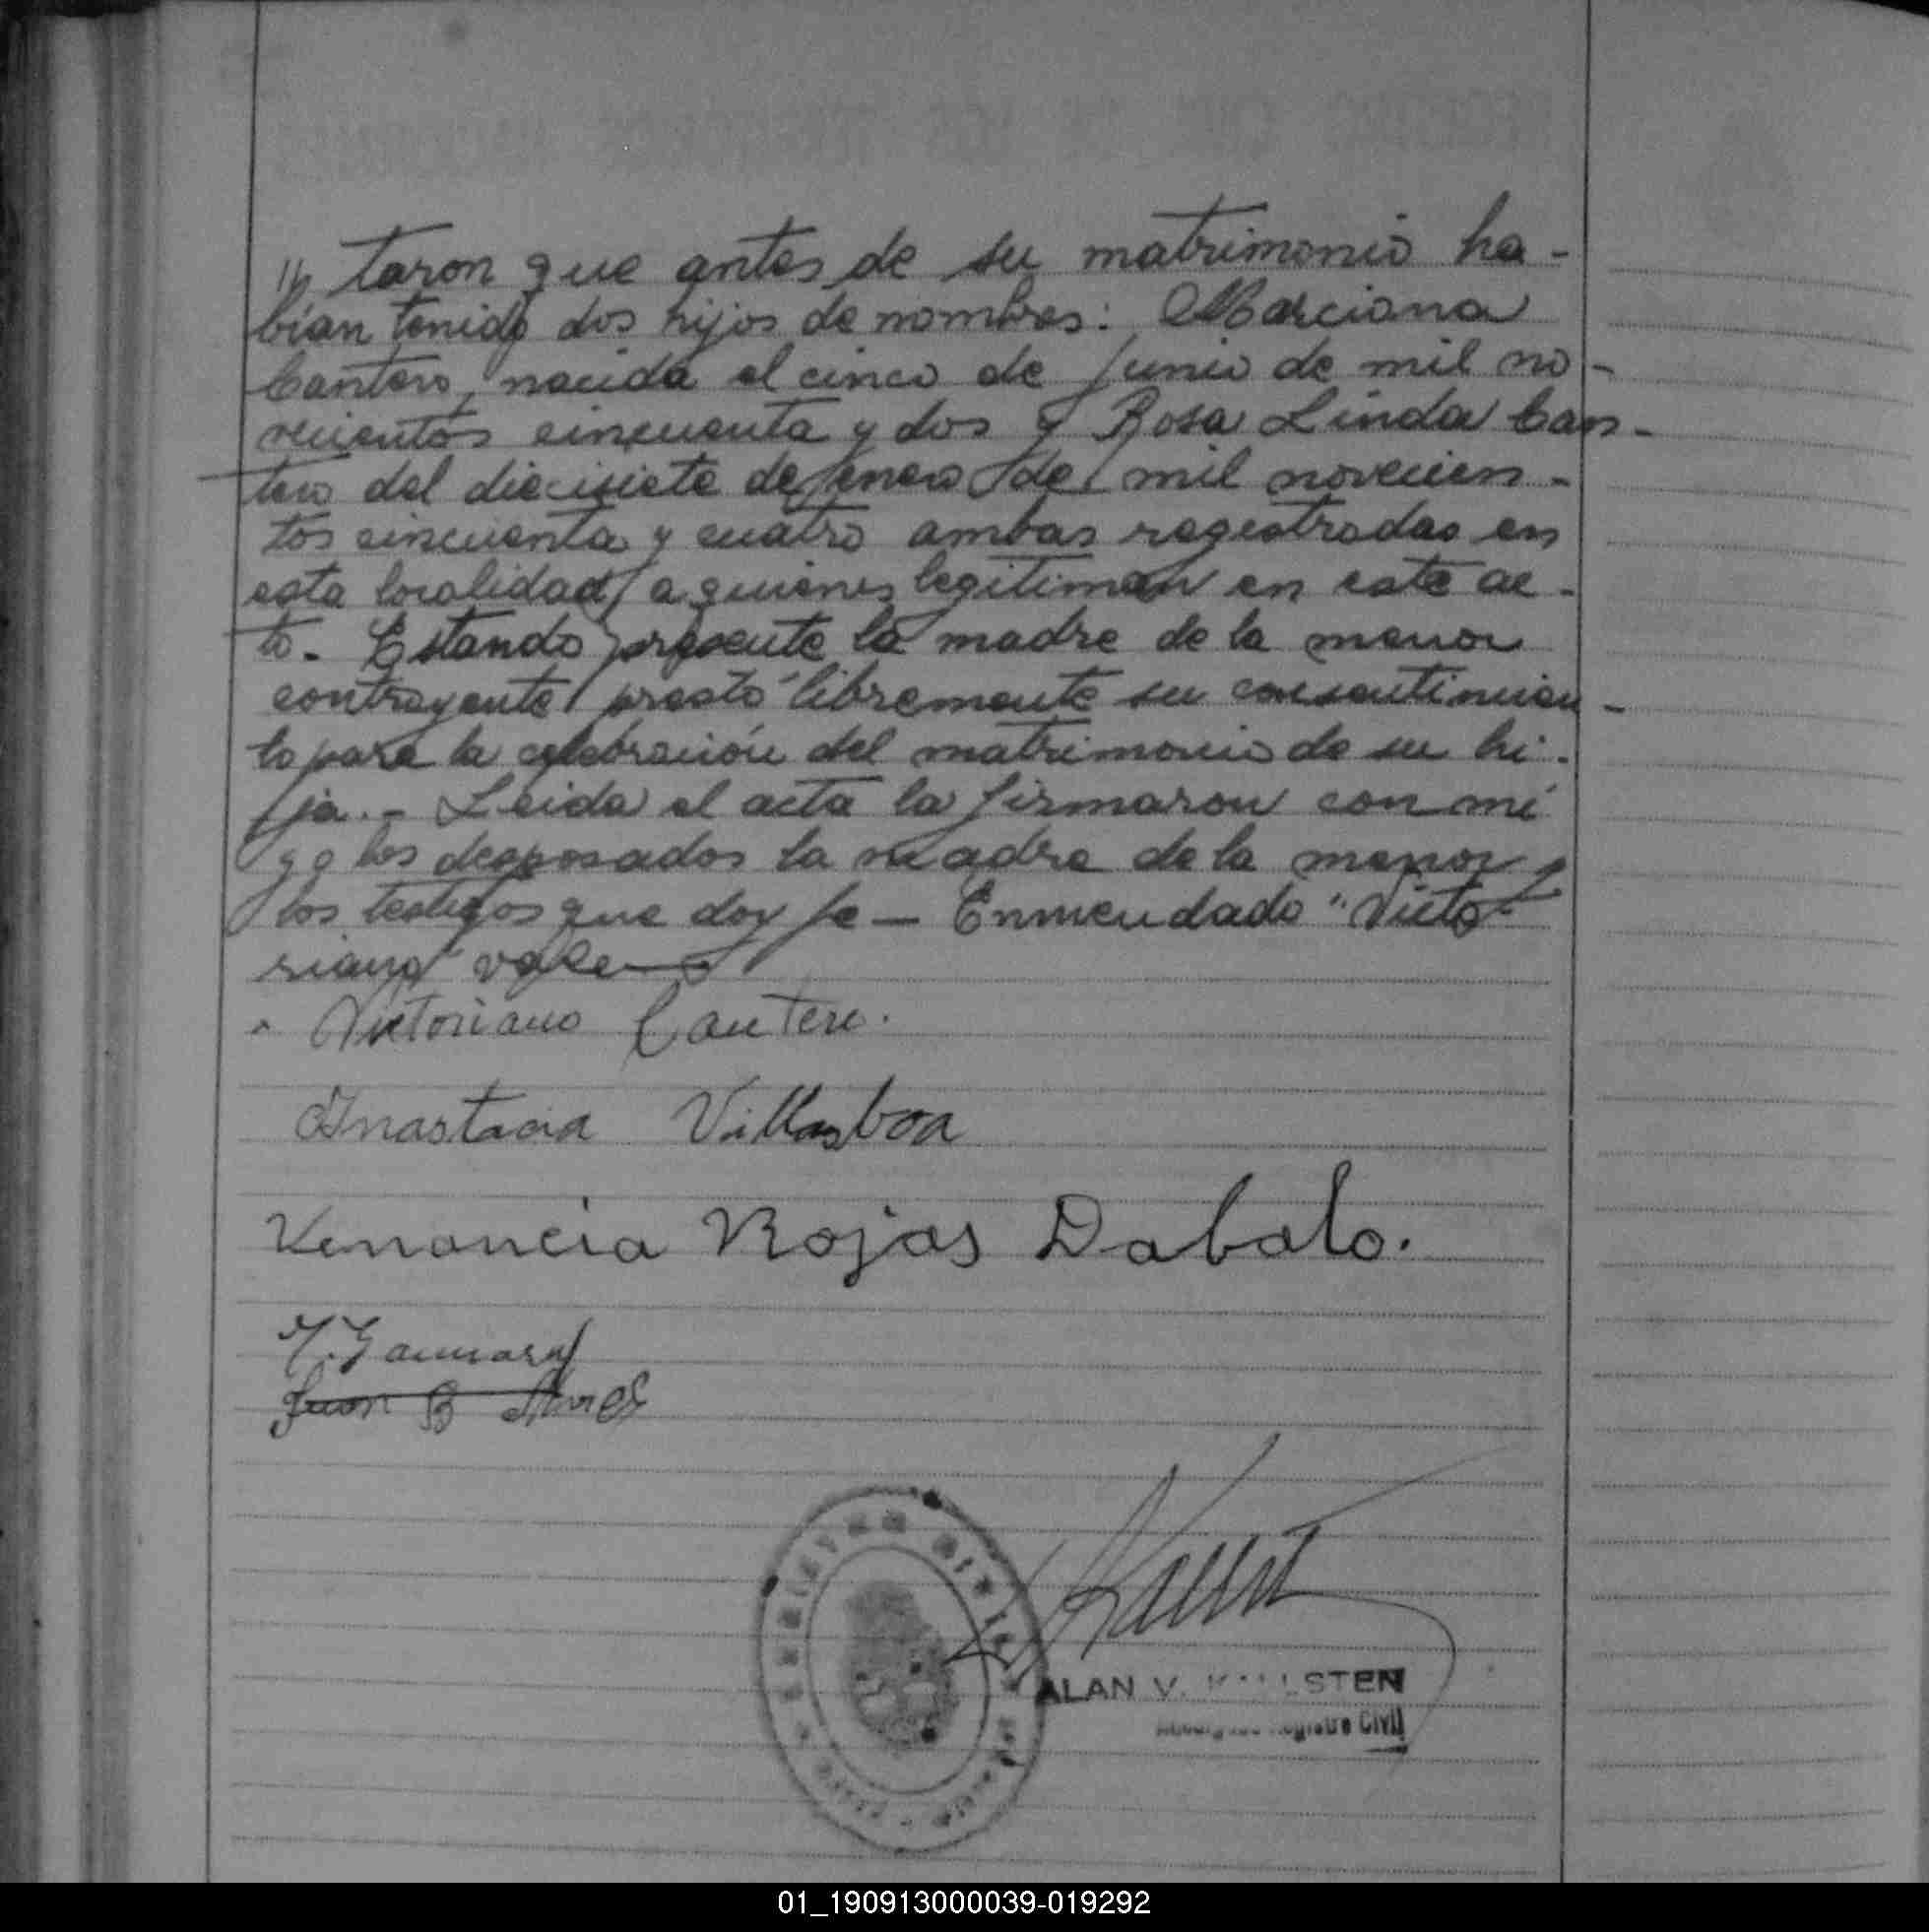 " taron que antes de su matrimonio ha-
bían tenido dos hijos de nombres: Marciana
Cantero, nacida el cinco de Junio de mil no-
vecientos cincuenta y dos y Rosa Linda Can-
tero del diecisiete de enero de mil novecien-
tos cincuenta y cuatro ambas registradas en
esta localidad, a quienes legitiman en este ac-
to. Estando presente la madre de la menor
contrayente prestó libremente su consentimien-
to para la celebración del matrimonio de su hi-
ja.- Leida el acta la firmaron con mi
go los desposados la madre de la menor y
los testigos que doy fe — Enmendado "Victo-
riano" vale
Victoriano Cantero.
Anastacia Villasboa
Venancia Rojas Dabalo.
Juan B
ALAN V. KALLSTEN
Registro Civil
01_190913000039-019292